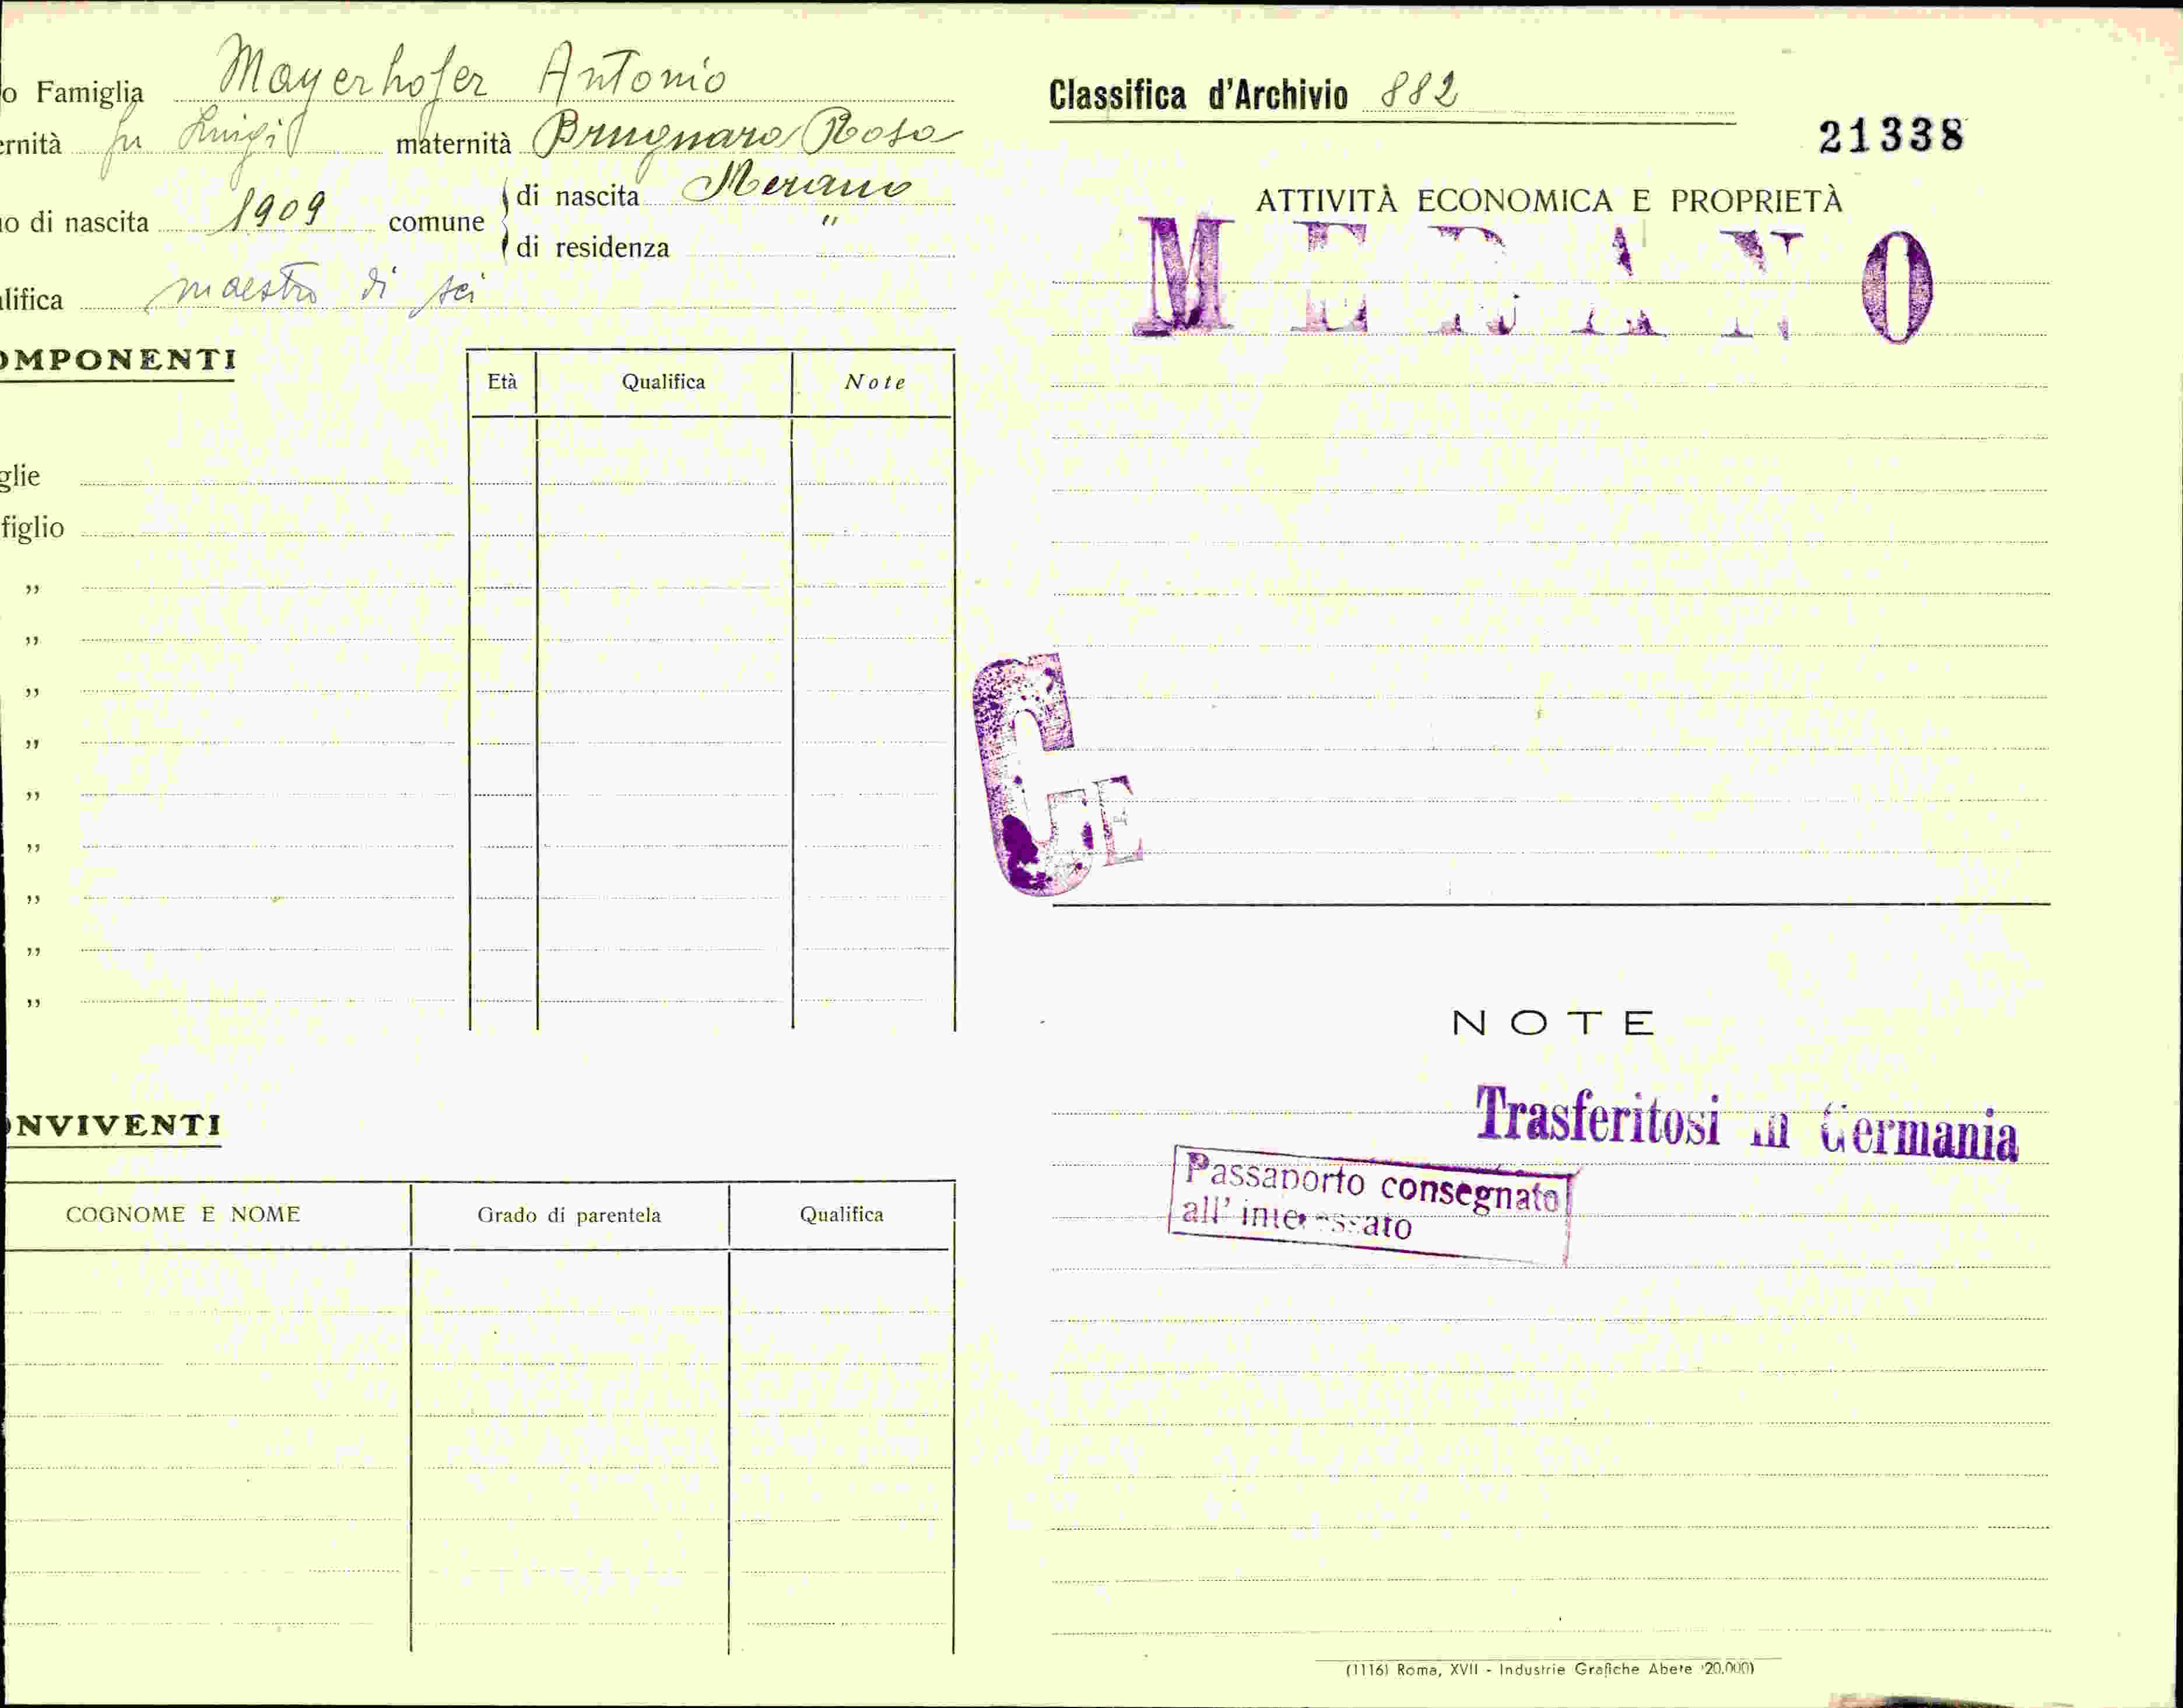 o Famiglia Mayerhofer Antonio
ernità fu Luigi maternità Brugnaro Rosa
no di nascita 1909 comune di nascita Merano
di residenza "
lifica maestro di sci
OMPONENTI
Età Qualifica Note
glie
figlio
"
"
"
"
"
"
"
"
"
ONVIVENTI
COGNOME E NOME Grado di parentela Qualifica
Classifica d'Archivio 882
21338
ATTIVITÀ ECONOMICA E PROPRIETÀ
MERANO
G
NOTE
Trasferitosi in Germania
Passaporto consegnato
all' interessato
(1116) Roma, XVII - Industrie Grafiche Abete (20.000)